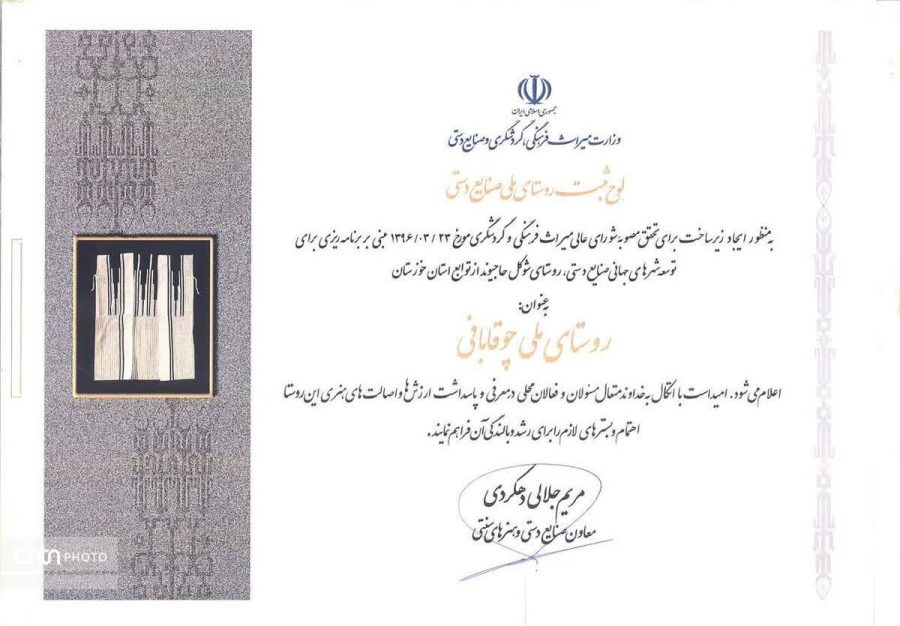 جمهوری اسلامی ایران
وزارت میراث فرهنگی، گردشگری و صنایع دستی
لوح ثبت روستای ملی صنایع دستی
به منظور ایجاد زیرساخت برای تحقق مصوبه شورای عالی میراث فرهنگی و گردشگری مورخ ۱۳۹۶/۰۳/۲۳ مبنی بر برنامه ریزی برای
توسعه شهرهای جهانی صنایع دستی، روستای شوکل حاجیوند از توابع استان خوزستان
به عنوان:
روستای ملی چوقابافی
اعلام می شود. امید است با اتکال به خداوند متعال مسئولان و فعالان محلی در معرفی و پاسداشت ارزش ها و اصالت های هنری این روستا
اهتمام و بسترهای لازم را برای رشد و بالندگی آن فراهم نمایند.
مریم جلالی دهکردی
معاون صنایع دستی و هنرهای سنتی
PHOTO